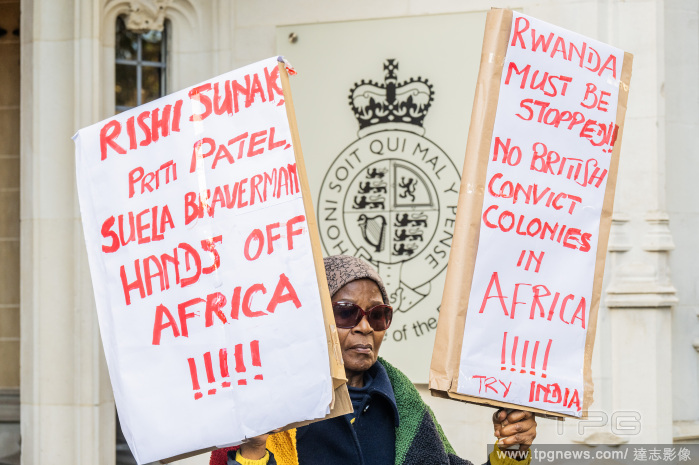 RISHI SUNAK,
PRITI PATEL,
SUELA BRAVERMAN
HANDS OFF
AFRICA
!!!!!
RWANDA
MUST BE
STOPPED!!
NO BRITISH
CONVICT
COLONIES
IN
AFRICA
!!!!
TRY INDIA
HONI SOIT QUI MAL Y PENSE
of the
TPG
www.tpgnews.com/ 達志影像